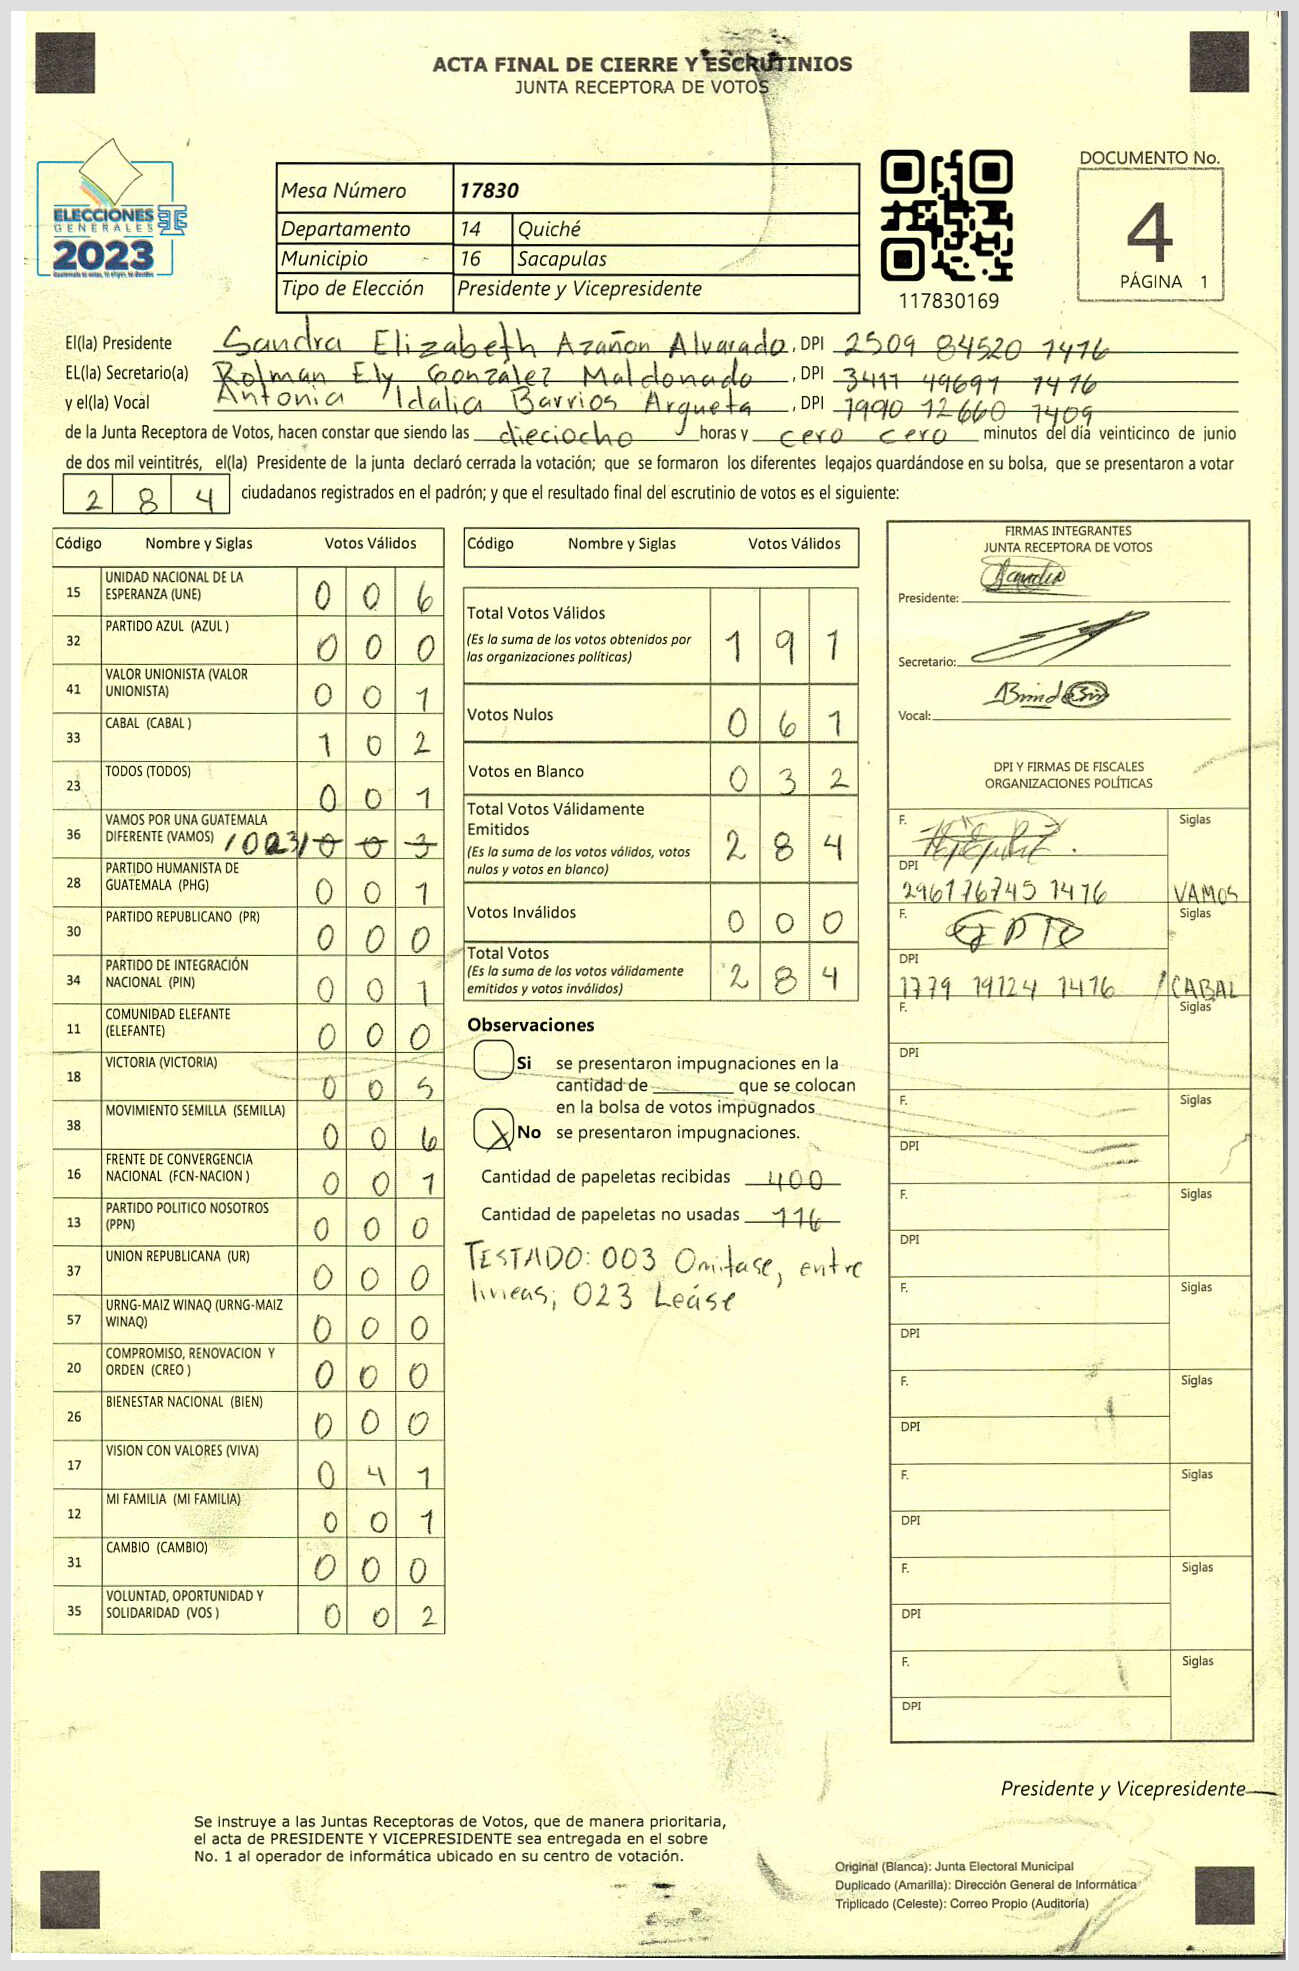 ACTA FINAL DE CIERRE Y ESCRUTINIOS
JUNTA RECEPTORA DE VOTOS
ELECCIONES
GENERALES
2023
Mesa Número 17830
Departamento 14 Quiché
Municipio 16 Sacapulas
Tipo de Elección Presidente y Vicepresidente
117830169
DOCUMENTO No.
4
PÁGINA 1
El(la) Presidente Sandra Elizabeth Azañon Alvarado, DPI 2509 84520 1416
EL(la) Secretario(a) Rolman Ely González Maldonado, DPI 3417 49697 1416
y el(la) Vocal Antonia Idalia Barrios Argueta, DPI 1990 12660 1409
de la Junta Receptora de Votos, hacen constar que siendo las dieciocho horas y cero cero minutos del día veinticinco de junio
de dos mil veintitrés, el(la) Presidente de la junta declaró cerrada la votación; que se formaron los diferentes legajos quardándose en su bolsa, que se presentaron a votar
2 8 4 ciudadanos registrados en el padrón; y que el resultado final del escrutinio de votos es el siguiente:
Código Nombre y Siglas Votos Válidos
15 UNIDAD NACIONAL DE LA ESPERANZA (UNE) 0 0 6
32 PARTIDO AZUL (AZUL ) 0 0 0
41 VALOR UNIONISTA (VALOR UNIONISTA) 0 0 1
33 CABAL (CABAL ) 1 0 2
23 TODOS (TODOS) 0 0 1
36 VAMOS POR UNA GUATEMALA DIFERENTE (VAMOS) /023/ 0 0 3
28 PARTIDO HUMANISTA DE GUATEMALA (PHG) 0 0 1
30 PARTIDO REPUBLICANO (PR) 0 0 0
34 PARTIDO DE INTEGRACIÓN NACIONAL (PIN) 0 0 1
11 COMUNIDAD ELEFANTE (ELEFANTE) 0 0 0
18 VICTORIA (VICTORIA) 0 0 5
38 MOVIMIENTO SEMILLA (SEMILLA) 0 0 6
16 FRENTE DE CONVERGENCIA NACIONAL (FCN-NACION ) 0 0 1
13 PARTIDO POLITICO NOSOTROS (PPN) 0 0 0
37 UNION REPUBLICANA (UR) 0 0 0
57 URNG-MAIZ WINAQ (URNG-MAIZ WINAQ) 0 0 0
20 COMPROMISO, RENOVACION Y ORDEN (CREO ) 0 0 0
26 BIENESTAR NACIONAL (BIEN) 0 0 0
17 VISION CON VALORES (VIVA) 0 4 1
12 MI FAMILIA (MI FAMILIA) 0 0 1
31 CAMBIO (CAMBIO) 0 0 0
35 VOLUNTAD, OPORTUNIDAD Y SOLIDARIDAD (VOS ) 0 0 2
Código Nombre y Siglas Votos Válidos
Total Votos Válidos 1 9 1
(Es la suma de los votos obtenidos por
las organizaciones políticas)
Votos Nulos 0 6 1
Votos en Blanco 0 3 2
Total Votos Válidamente
Emitidos 2 8 4
(Es la suma de los votos válidos, votos
nulos y votos en blanco)
Votos Inválidos 0 0 0
Total Votos 2 8 4
(Es la suma de los votos válidamente
emitidos y votos inválidos)
Observaciones
Si se presentaron impugnaciones en la
cantidad de ________ que se colocan
en la bolsa de votos impugnados
X No se presentaron impugnaciones.
Cantidad de papeletas recibidas 400
Cantidad de papeletas no usadas 116
TESTADO: 003 Omitase, entre
lineas; 023 Leáse
FIRMAS INTEGRANTES
JUNTA RECEPTORA DE VOTOS
Presidente:
Secretario:
Vocal:
DPI Y FIRMAS DE FISCALES
ORGANIZACIONES POLÍTICAS
F. Siglas
DPI
296176745 1416 VAMOS
F. Siglas
DPI
1779 19124 1416 CABAL
F. Siglas
DPI
F. Siglas
DPI
F. Siglas
DPI
F. Siglas
DPI
F. Siglas
DPI
F. Siglas
DPI
F. Siglas
DPI
F. Siglas
DPI
Presidente y Vicepresidente
Se instruye a las Juntas Receptoras de Votos, que de manera prioritaria,
el acta de PRESIDENTE Y VICEPRESIDENTE sea entregada en el sobre
No. 1 al operador de informática ubicado en su centro de votación.
Original (Blanca): Junta Electoral Municipal
Duplicado (Amarilla): Dirección General de Informática
Triplicado (Celeste): Correo Propio (Auditoría)